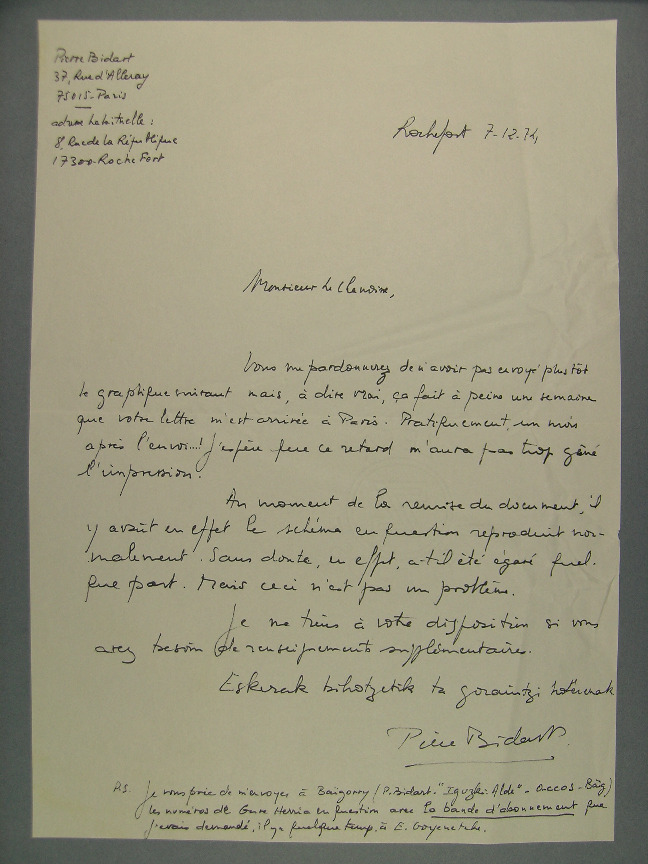 Pierre Bidart
37, Rue d'Alleray
75015-Paris
adresse habituelle :
8, Rue de la République
17300-Rochefort
Rochefort 7-12-74
Monsieur le Chanoine,
Vous me pardonnerez de n'avoir pas envoyé plus tôt
le graphique suivant mais, à dire vrai, ça fait à peine une semaine
que votre lettre m'est arrivée à Paris. Pratiquement, un mois
après l'envoi...! J'espère que ce retard n'aura pas trop gêné
l'impression.
Au moment de la remise du document, il
y avait en effet le schéma en question reproduit nor-
malement. Sans doute, en effet, a-t-il été égaré quel-
que part. Mais ceci n'est pas un problème.
Je me tiens à votre disposition si vous
avez besoin de renseignements supplémentaires.
Eskerrak bihotzetik ta goraintzi hoberenak
Pierre Bidart.
P.S. Je vous prie de m'envoyer à Baïgorry (P. Bidart. "Iguzki-Alde" - Occos - Baïg)
les numéros de Gure Herria en question avec la bande d'abonnement que
j'avais demandé, il y a quelque temps, à E. Goyenetche.